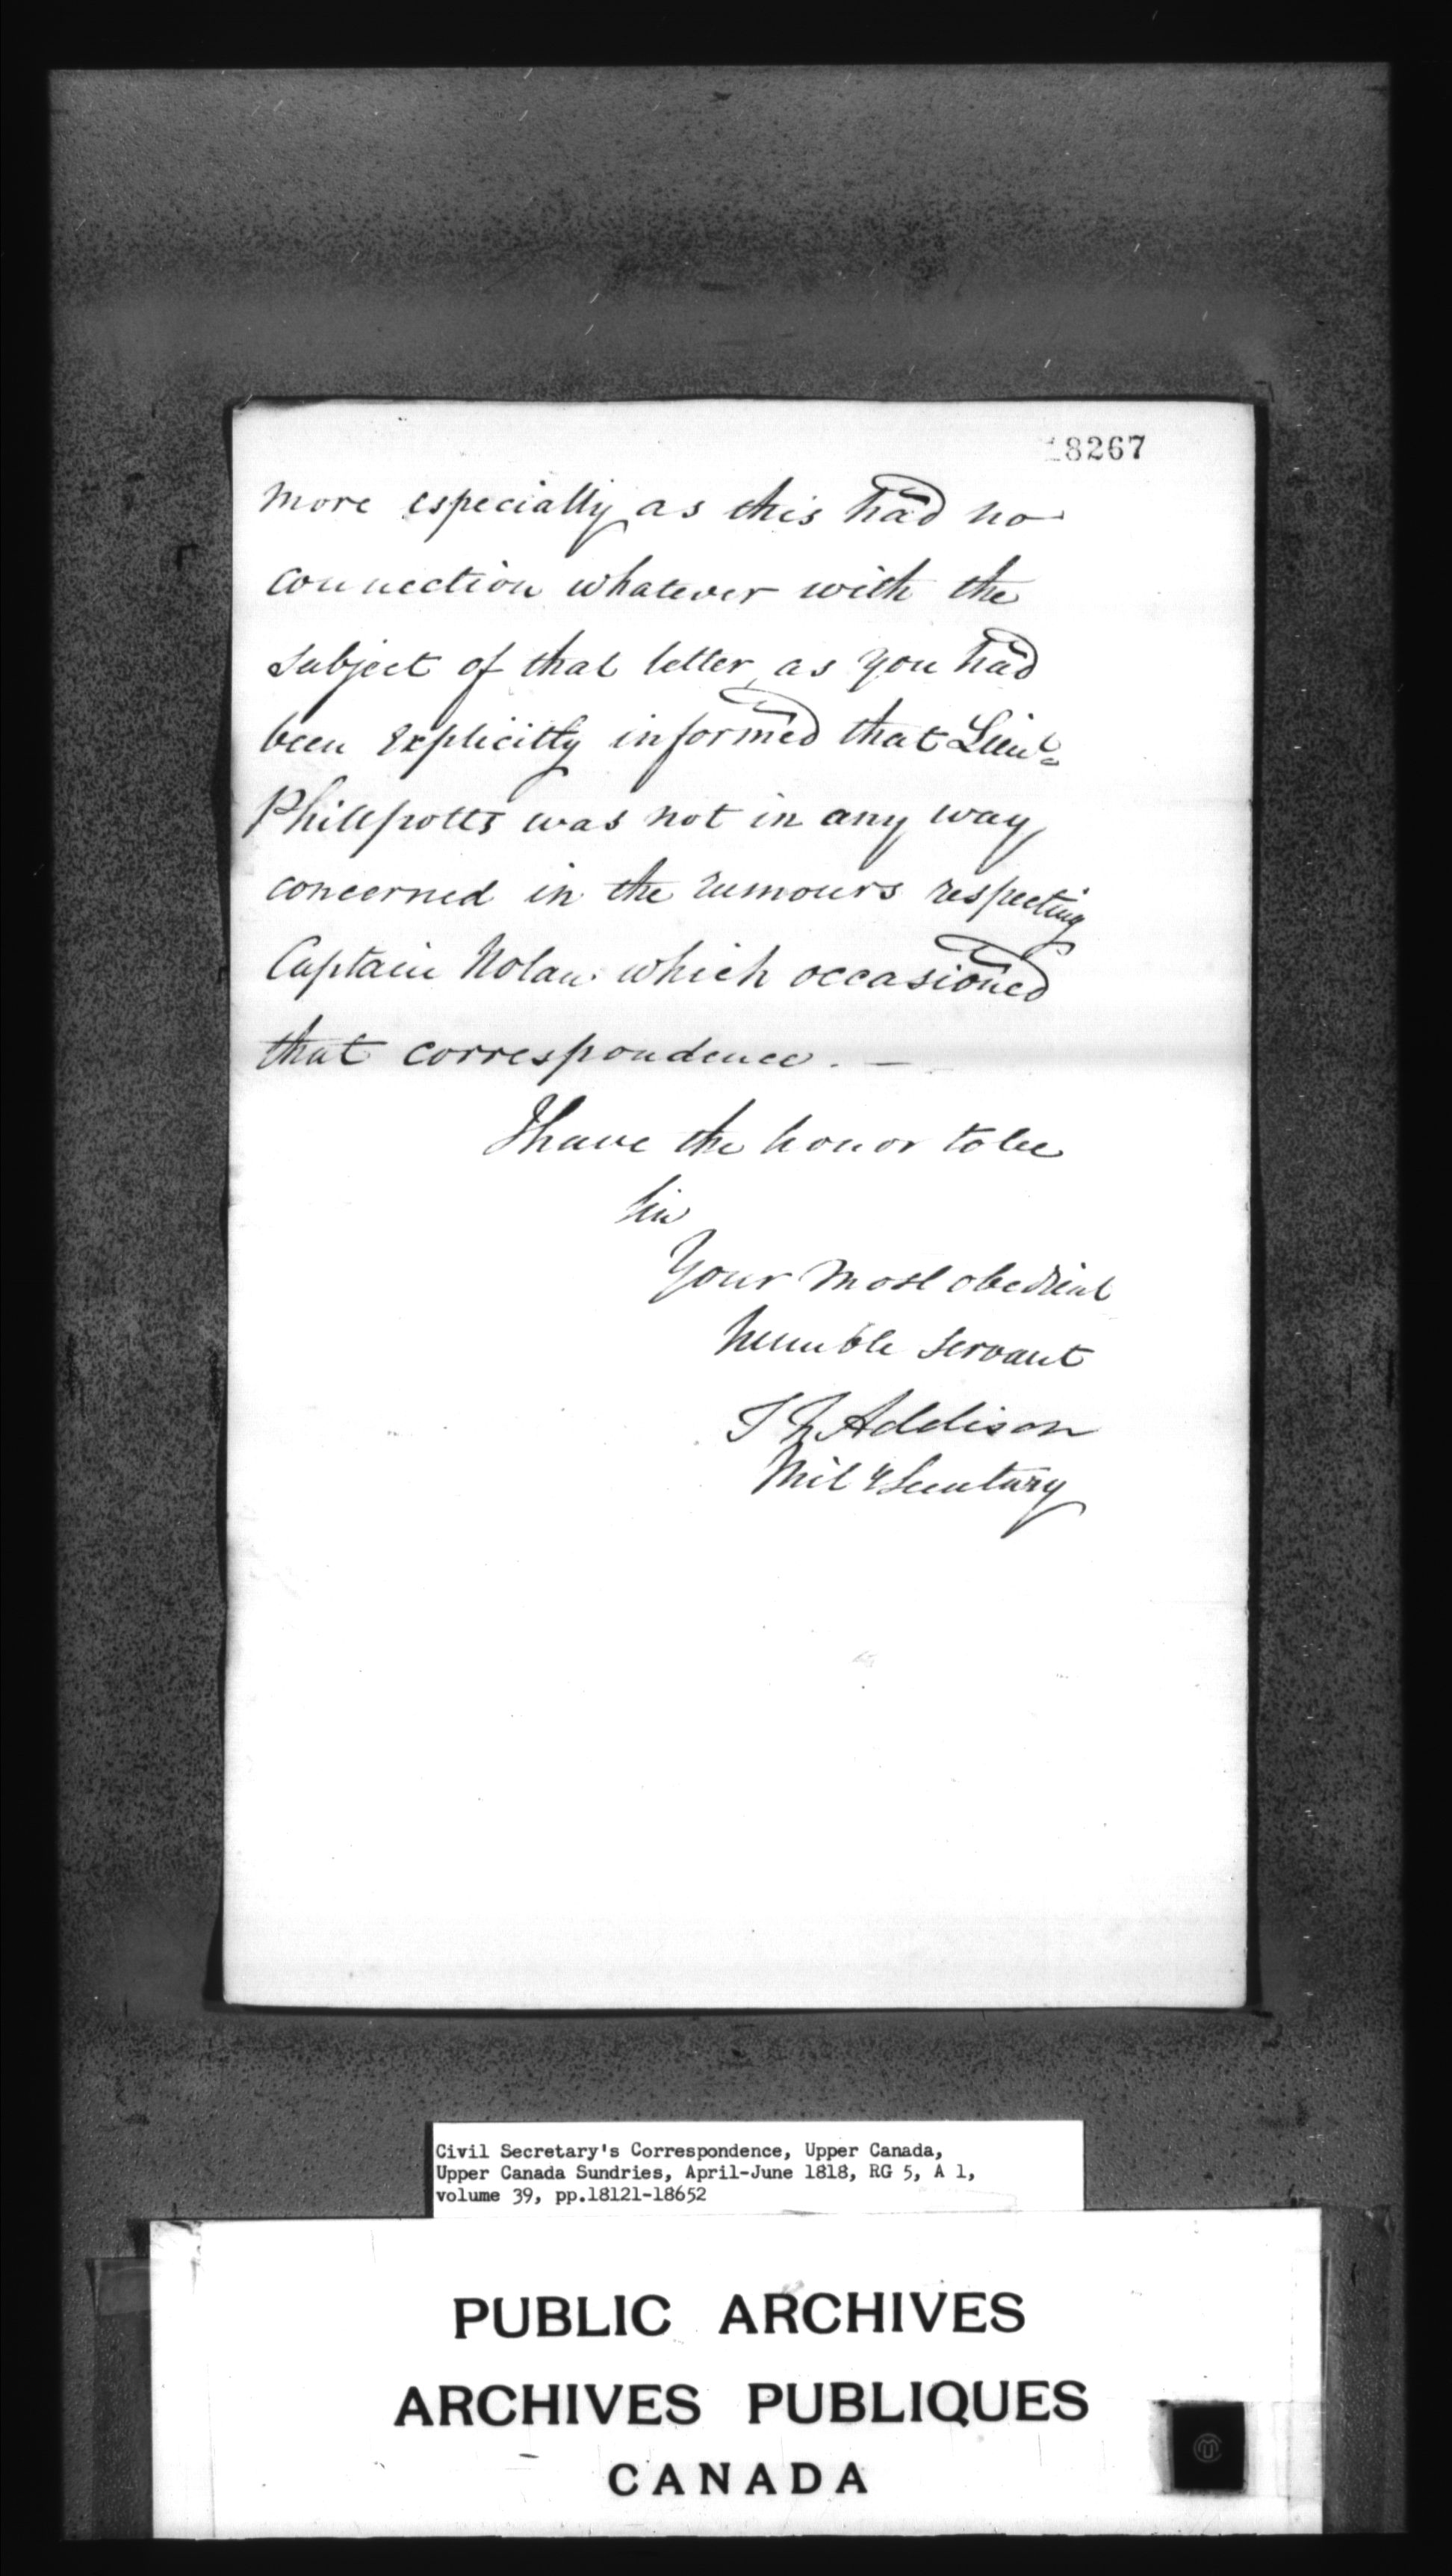 18267
more especially as this had no
connection whatever with the
subject of that letter, as you had
been explicitly informed that Lieut
Phillpotts was not in any way
concerned in the rumours respecting
Captain Nolan which occasioned
that correspondence. —
I have the honor to be
Sir
Your most obedient
humble servant
T Addison
Mily Secretary
Civil Secretary's Correspondence, Upper Canada,
Upper Canada Sundries, April-June 1818, RG 5, A 1,
volume 39, pp.18121-18652
PUBLIC ARCHIVES
ARCHIVES PUBLIQUES
CANADA